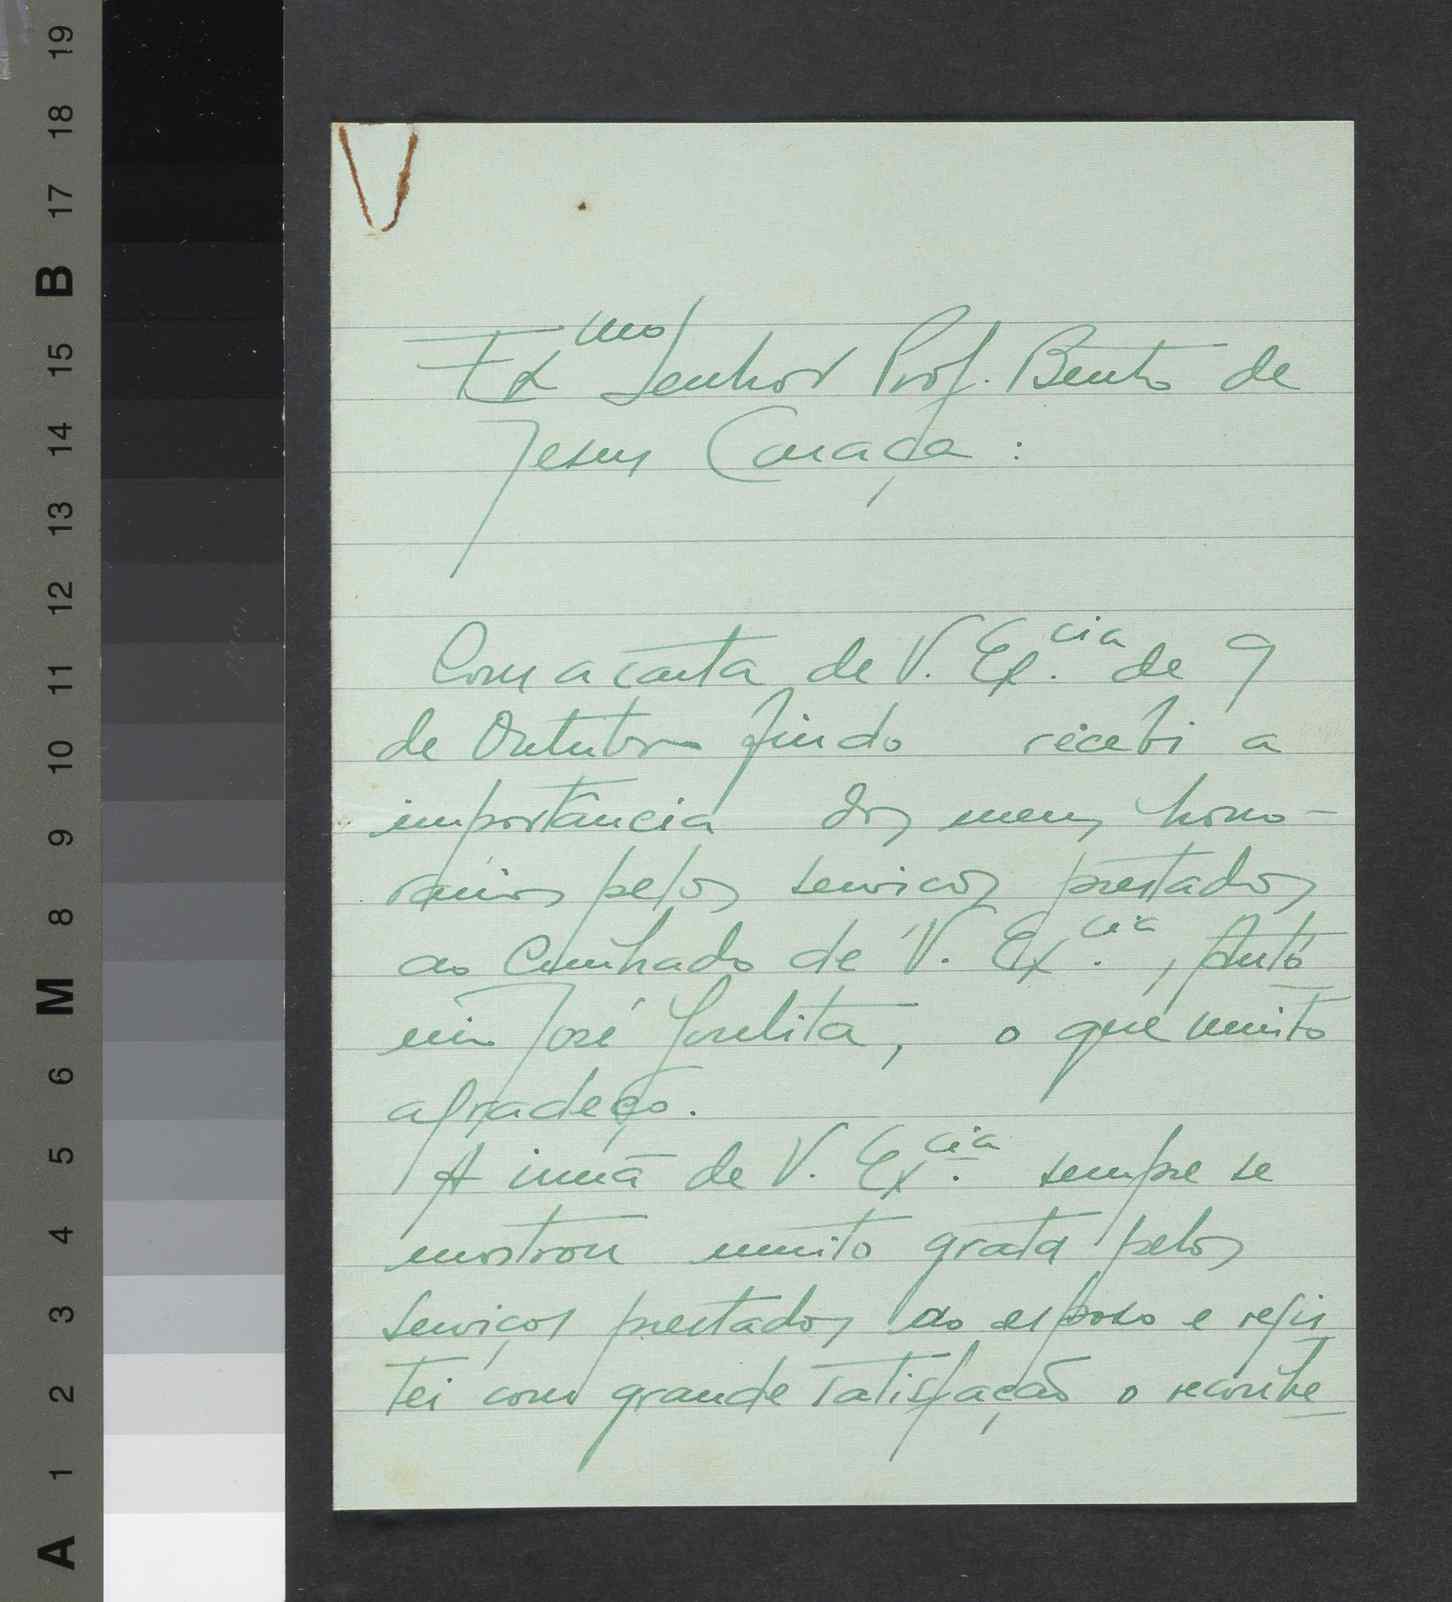 19
18
17
B
15
14
13
12
11
10
9
8
M
6
5
4
3
2
1
A
Ex.mo Senhor Prof. Bento de
Jesus Caraça :
Com a carta de V. Ex.cia de 9
de Outubro findo recebi a
importância dos meus hono-
rários pelos serviços prestados
ao Cunhado de V. Ex.cia, Antó
nio José, o que muito
agradeço.
A irmã de V. Ex.cia sempre se
mostrou muito grata pelos
serviços prestados ao esposo e regis
tei com grande satisfação o reconhe